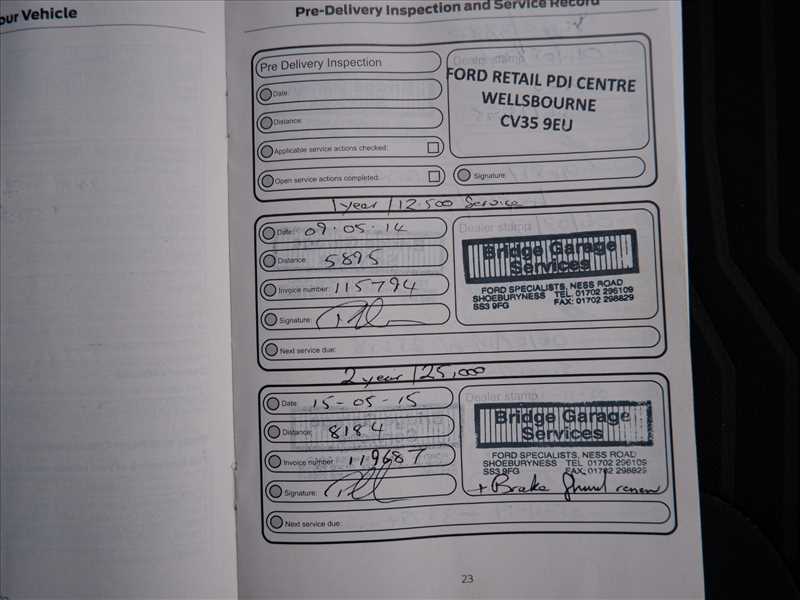 our Vehicle
Pre-Delivery Inspection and Service Record
Pre Delivery Inspection
Date:
Distance:
Applicable service actions checked:
Open service actions completed:
Dealer stamp
FORD RETAIL PDI CENTRE
WELLSBOURNE
CV35 9EU
Signature:
1 year / 12.500 Service
Date: 09.05.14
Distance: 5895
Invoice number: 115794
Signature:
Next service due:
Dealer stamp
Bridge Garage
Services
FORD SPECIALISTS, NESS ROAD
SHOEBURYNESS TEL. 01702 296109
SS3 9FG FAX: 01702 298829
2 year / 25,000
Date: 15-05-15
Distance: 8184
Invoice number 119687
Signature:
Next service due:
Dealer stamp
Bridge Garage
Services
FORD SPECIALISTS, NESS ROAD
SHOEBURYNESS TEL 01702 296109
SS3 9FG FAX: 01702 298829
+ Brake fluid renew
23